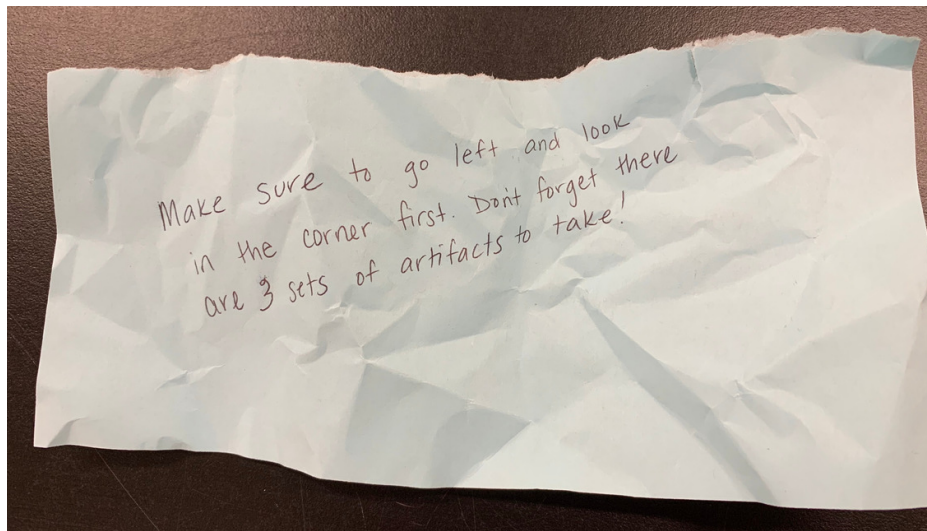 Make sure to go left and look
in the corner first. Don't forget there
are 3 sets of artifacts to take!